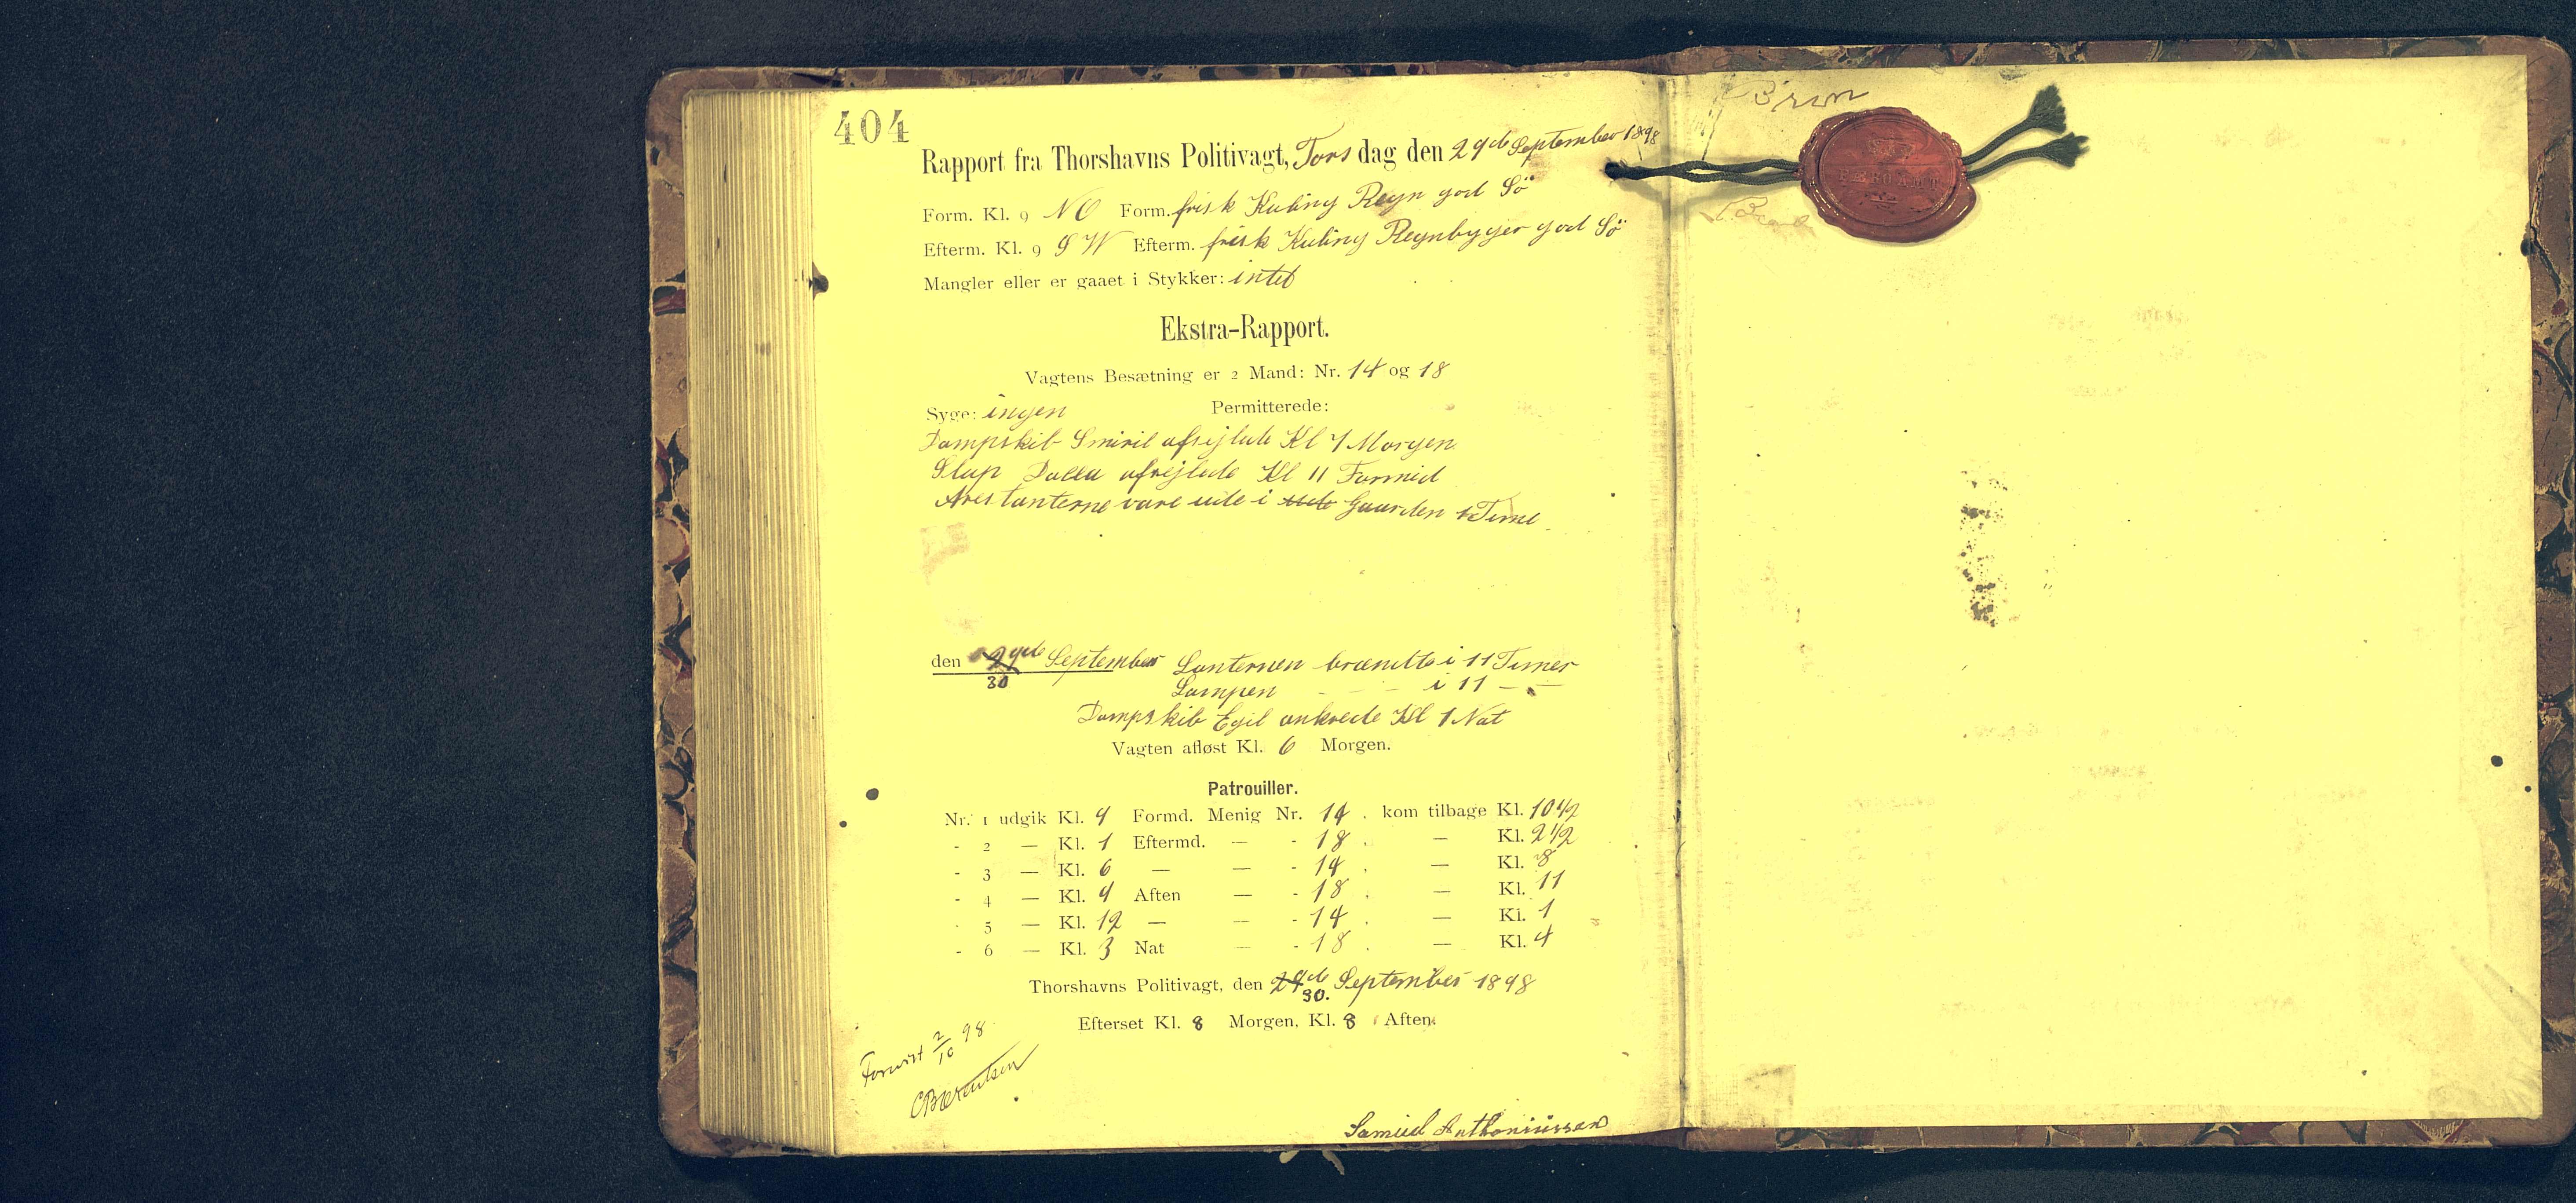 404
Rapport fra Thorshavns Politivagt, Torsdag den 29de September 1898
Form. Kl. 9 NO Form. frisk Kuling Regn god Sö
Efterm. Kl. 9 SW Efterm. frisk Kuling Regnbyger god Sö
Mangler eller er gaaet i Stykker: intet
Ekstra-Rapport.
Vagtens Besætning er 2 Mand: Nr. 14 og 18
Syge: ingen Permitterede:
Dampskib Smiril afsejlede Kl 7 Morgen
Slup afsejlede Kl 11 Formid
Arestanterne vare ude i ude Gaarden 1 Time
den 29de September Lanternen brændte i 11 Timer
30 Lampen - - - i 11 - -
Dampskib Egil ankrede Kl 1 Nat
Vagten afløst Kl. 6 Morgen.
Patrouiller.
Nr. 1 udgik Kl. 9 Formd. Menig Nr. 14 . kom tilbage Kl. 10 1/2
- 2 — Kl. 1 Eftermd. — - 18 . — Kl. 2 1/2
- 3 — Kl. 6 — — - 14 . — Kl. 8
- 4 — Kl. 9 Aften — - 18 . — Kl. 11
- 5 — Kl. 12 — — - 14 . — Kl. 1
- 6 — Kl. 3 Nat — - 18 . — Kl. 4
Thorshavns Politivagt, den 29de September 1898
30.
Efterset Kl. 8 Morgen, Kl. 8 Aften.
Forevist 2/10 98
CBærentsen
Samuel Anthoniussen